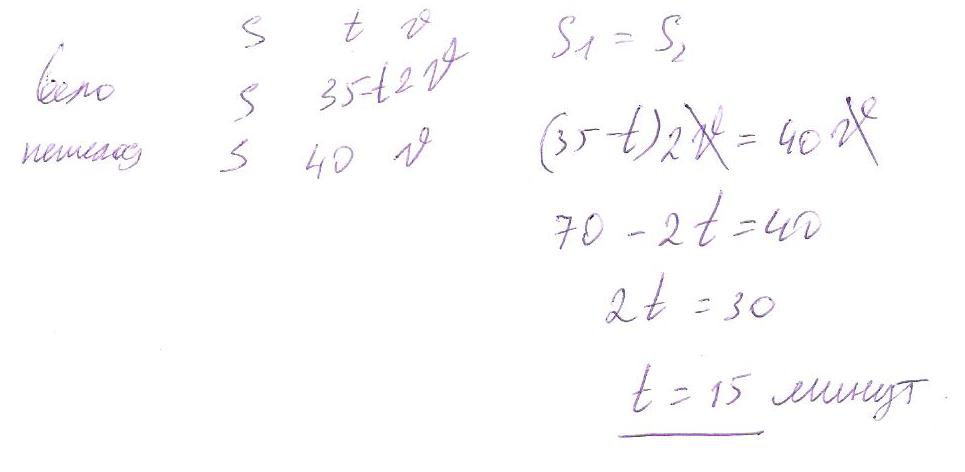 S t v
вело S 35-t 2v
пешеход S 40 v
S₁ = S₂
(35-t)2v = 40v
70 - 2t = 40
2t = 30
t = 15 минут